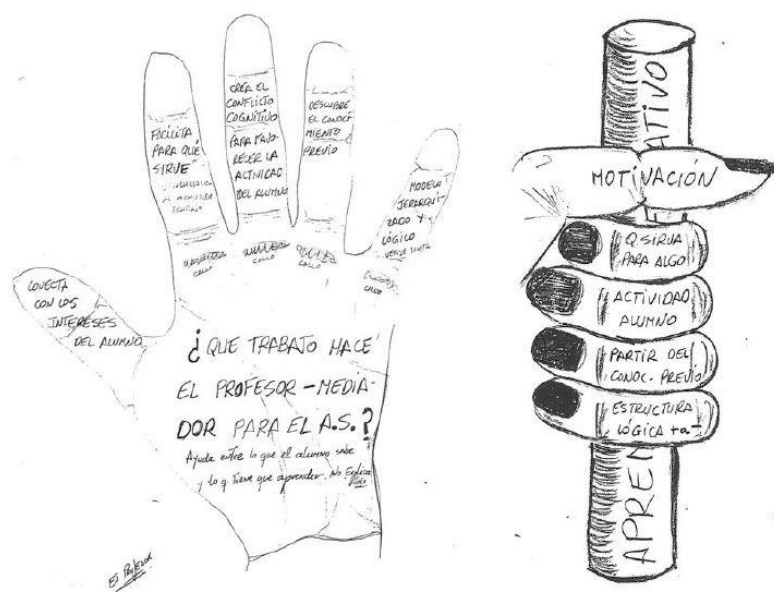 CONECTA
CON LOS
INTERESES
DEL ALUMNO
FACILITA
PARA QUÉ
SIRVE
CREA EL
CONFLICTO
COGNITIVO
PARA FAVO-
RECER LA
ACTIVIDAD
DEL ALUMNO
DESCUBRE
EL CONOCI-
MIENTO
PREVIO
MODELO
JERARQUI-
ZADO Y
LÓGICO
CALLO
CALLO
CALLO
CALLO
¿QUE TRABAJO HACE
EL PROFESOR-MEDIA-
DOR PARA EL A.S.?
Ayuda entre lo que el alumno sabe
y lo q tiene que aprender. No Explica
El Profesor
MOTIVACIÓN
Q SIRVA
PARA ALGO
ACTIVIDAD
ALUMNO
PARTIR DEL
CONOC. PREVIO
ESTRUCTURA
LÓGICA +a-
APREN
ATIVO